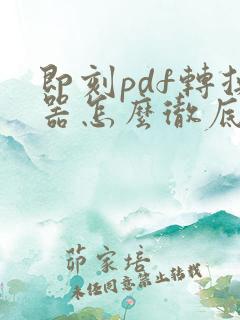 即刻pdf轉換
器怎麼徹底
茆家培
未經同意禁止轉載